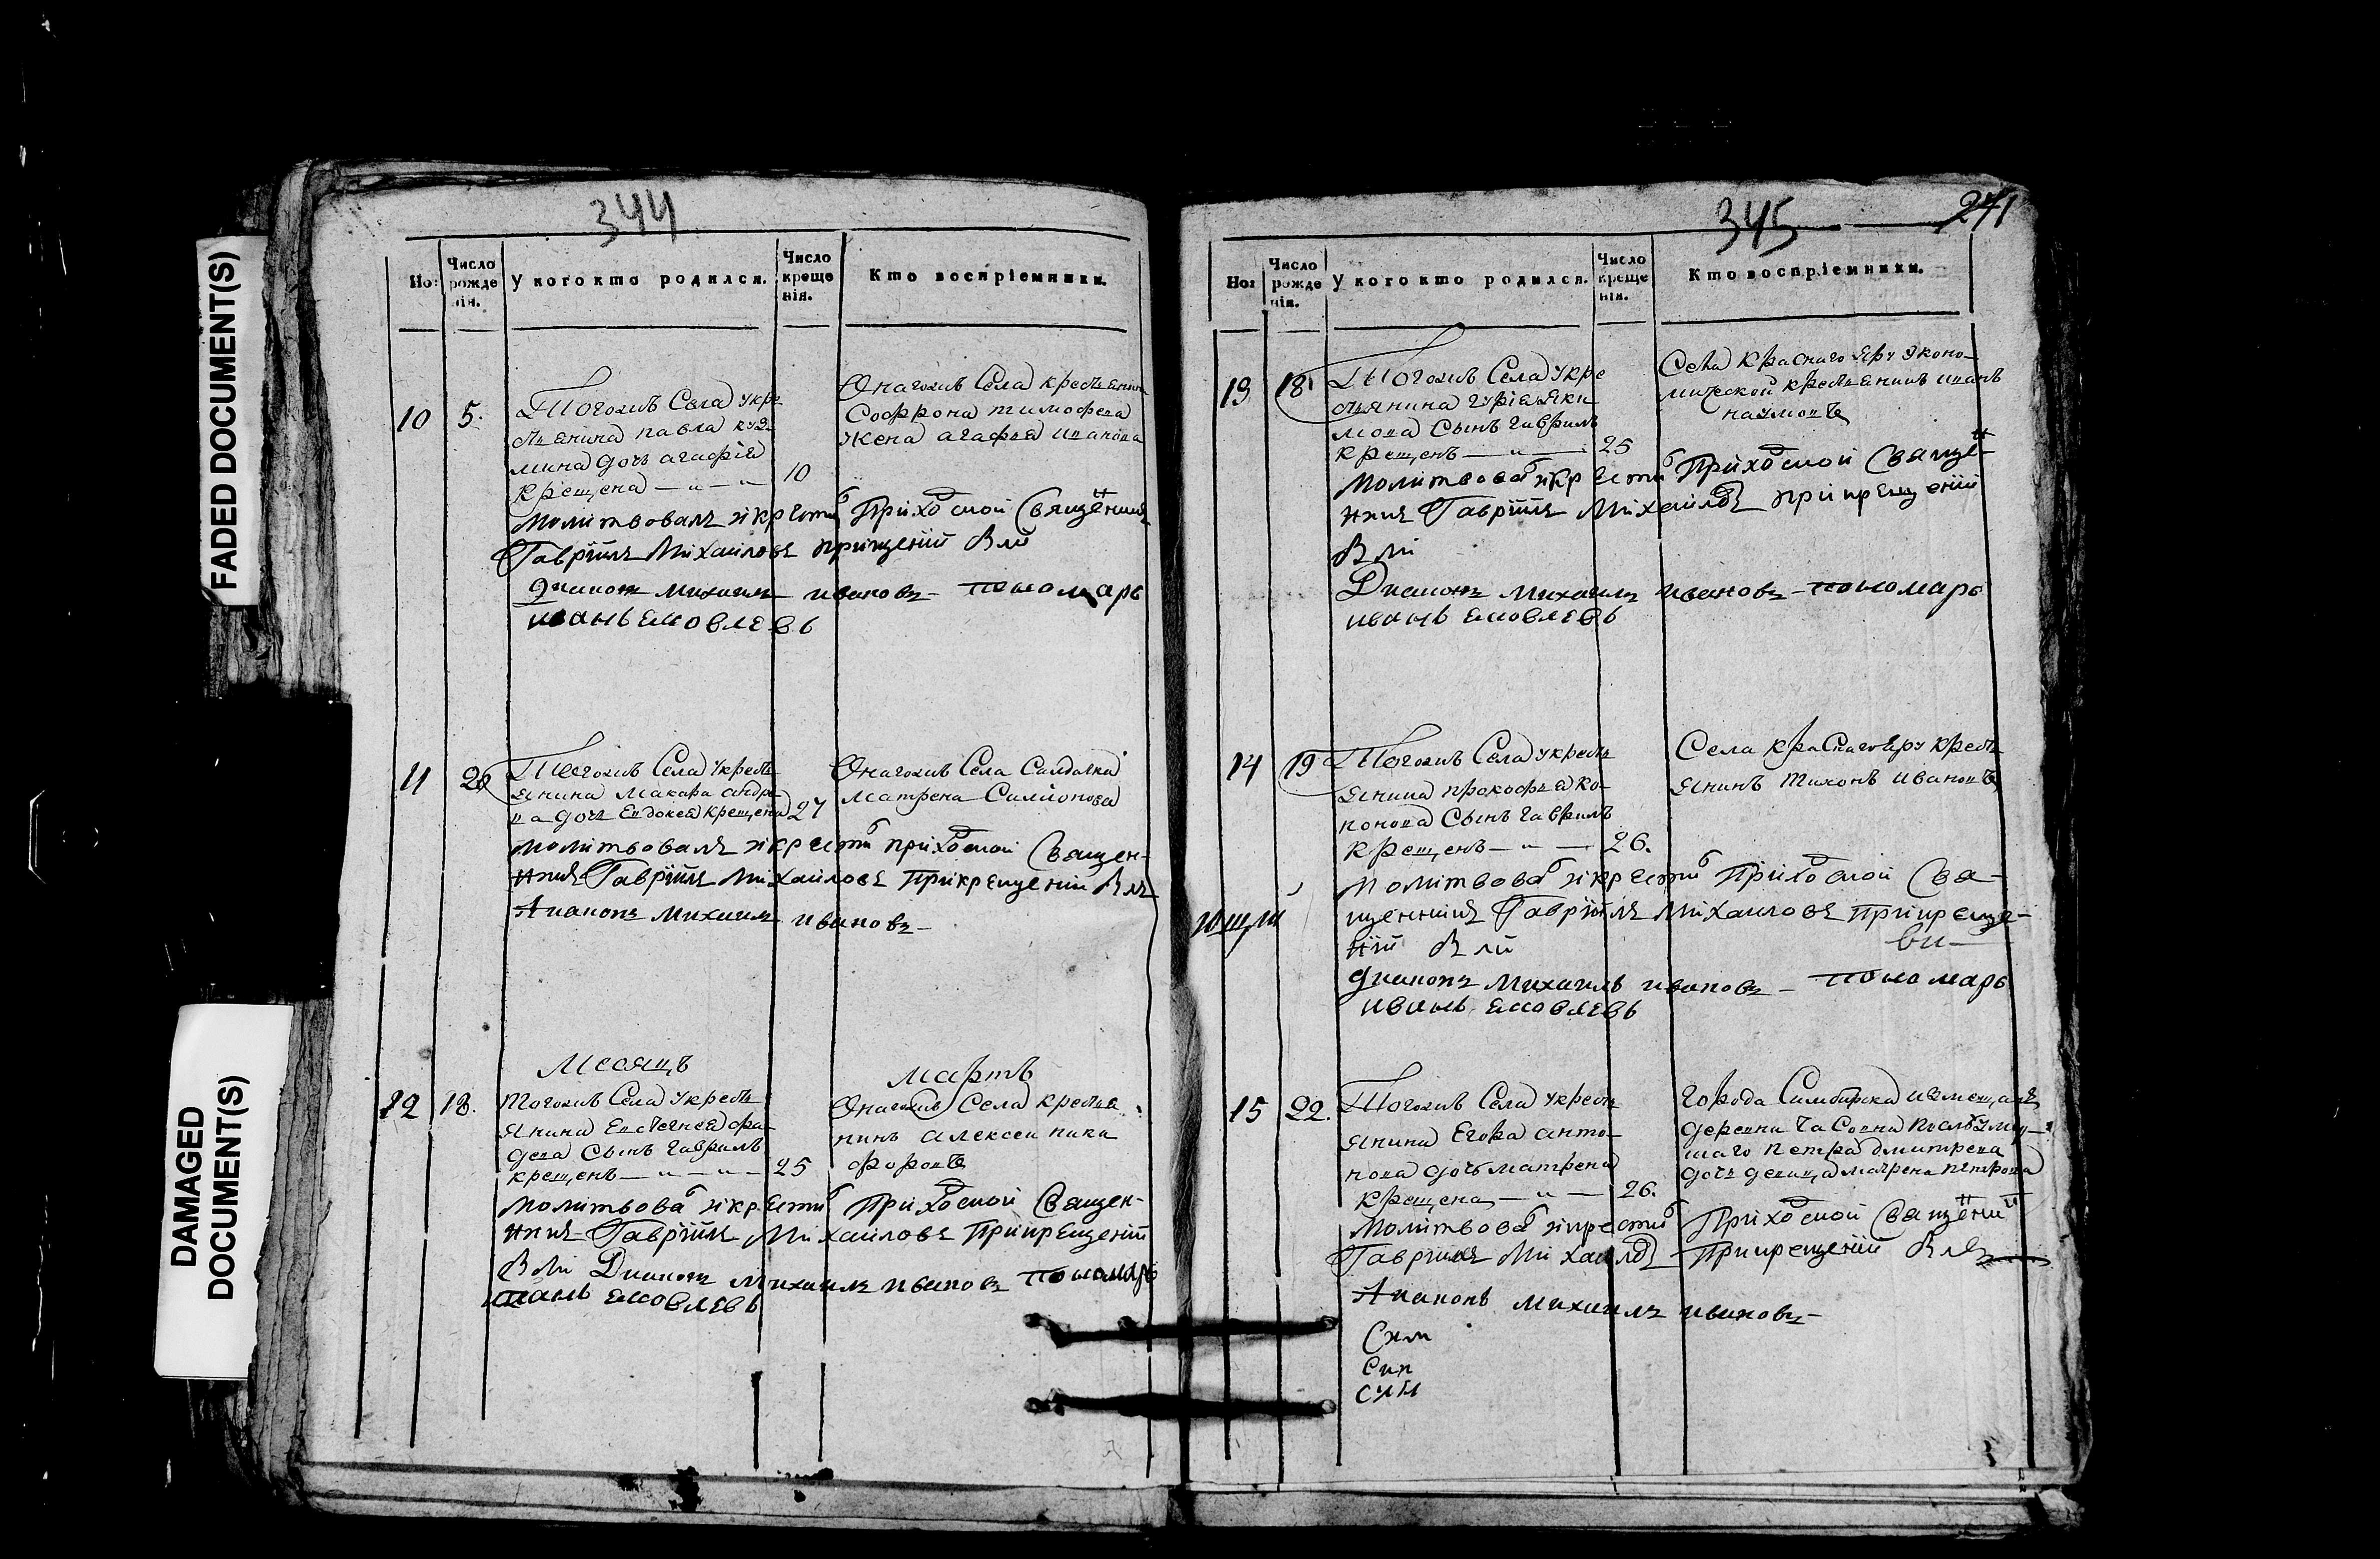 FADED DOCUMENT(S)
DAMAGED
DOCUMENT(S)
344
Но:
Число
рожде
нія.
У кого кто родился.
Число
креще
нія.
Кто воспріемники.
10
5.
Тогожъ Села укре
стьянина павла куз
мина дочь агафія
крещена — „ — „
10
Онагожъ Села крестьянин
Софрона тимофеева
жена агафья иванова
молитвовалъ и крестил Приходской Священник
Гавріилъ Михаиловъ при
Диаконъ михаилъ ивановъ — пономарь
иванъ ековлевъ
11
20
Тогожъ Села укресть
янина макара андре
ва дочь Евдокея крещена
27
Онагожъ Села Салдатка
матрена Симионова
молитвовалъ и крестил приходской Священ-
никъ Гавріилъ Михаиловъ При крещеніи
Диаконъ михаилъ ивановъ —
месяцъ
мартъ
12
18.
Тогожъ Села укресть
янина Евстегнея фа
деева Сынъ гаврилъ
крещенъ — „ — „ —
25
Онагожъ Села крестья
нинъ алексеи ники
форовъ
молитвова и крестил Приходской Священ-
никъ Гавріилъ Михаиловъ При крещеніи
Диаконъ михаилъ ивановъ пономарь
иванъ ековлевъ
345
241
Но:
Число
рожде
нія.
У кого кто родился.
Число
креще
нія.
Кто воспріемники.
13
18
Тогожъ Села укре
стьянина гурія Яки
мова Сынъ гаврилъ
крещенъ — „ —
25
Села Краснаго Яру Эконо-
мической крестьянинъ иванъ
наумовъ
молитвова и крестил Приходской Священ
никъ Гавріилъ Михаило при крещеніи
Диаконъ михаилъ ивановъ — пономарь
иванъ ековлевъ
14
19
Тогожъ Села укресть
янина прокофья ко-
нонова Сынъ гаврилъ
крещенъ — „ —
26.
Села краснаго Яру кресть
янинъ Тихонъ ивановъ
молитвова и крестил Приходской Свя-
щенникъ Гавріилъ Михаиловъ При креще-
ніи
Диаконъ михаилъ ивановъ — пономарь
иванъ ековлевъ
15
22.
Тогожъ Села укресть
янина Егора анто-
нова дочь матрена
крещена — „ —
26.
города Симбирска
деревни
шаго петра дмитрева
дочь девица матрена петрова
молитвова и крестил Приходской Священи
Гавріилъ Михаило При крещеніи
Диаконъ михаилъ ивановъ —